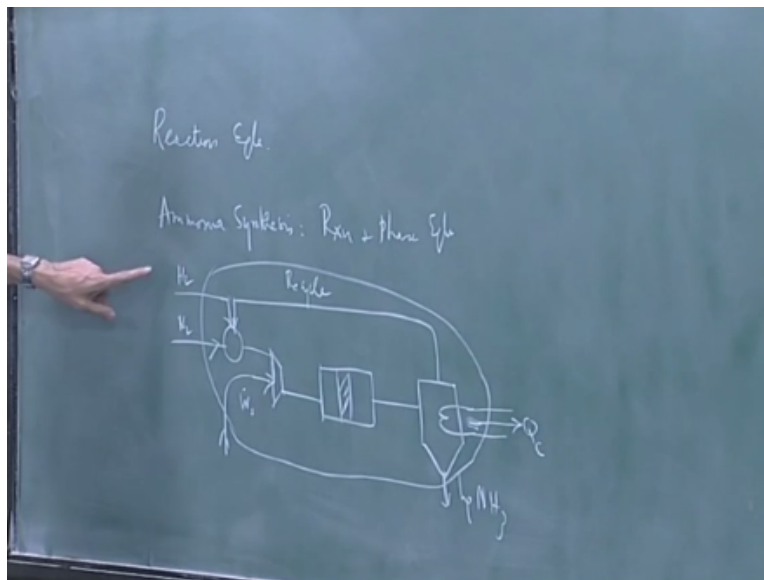 Reaction Eqb.
Ammonia Synthesis: Rxn & Phase Eqb
H2
Recycle
N2
Ẇs
Qc
liq NH3